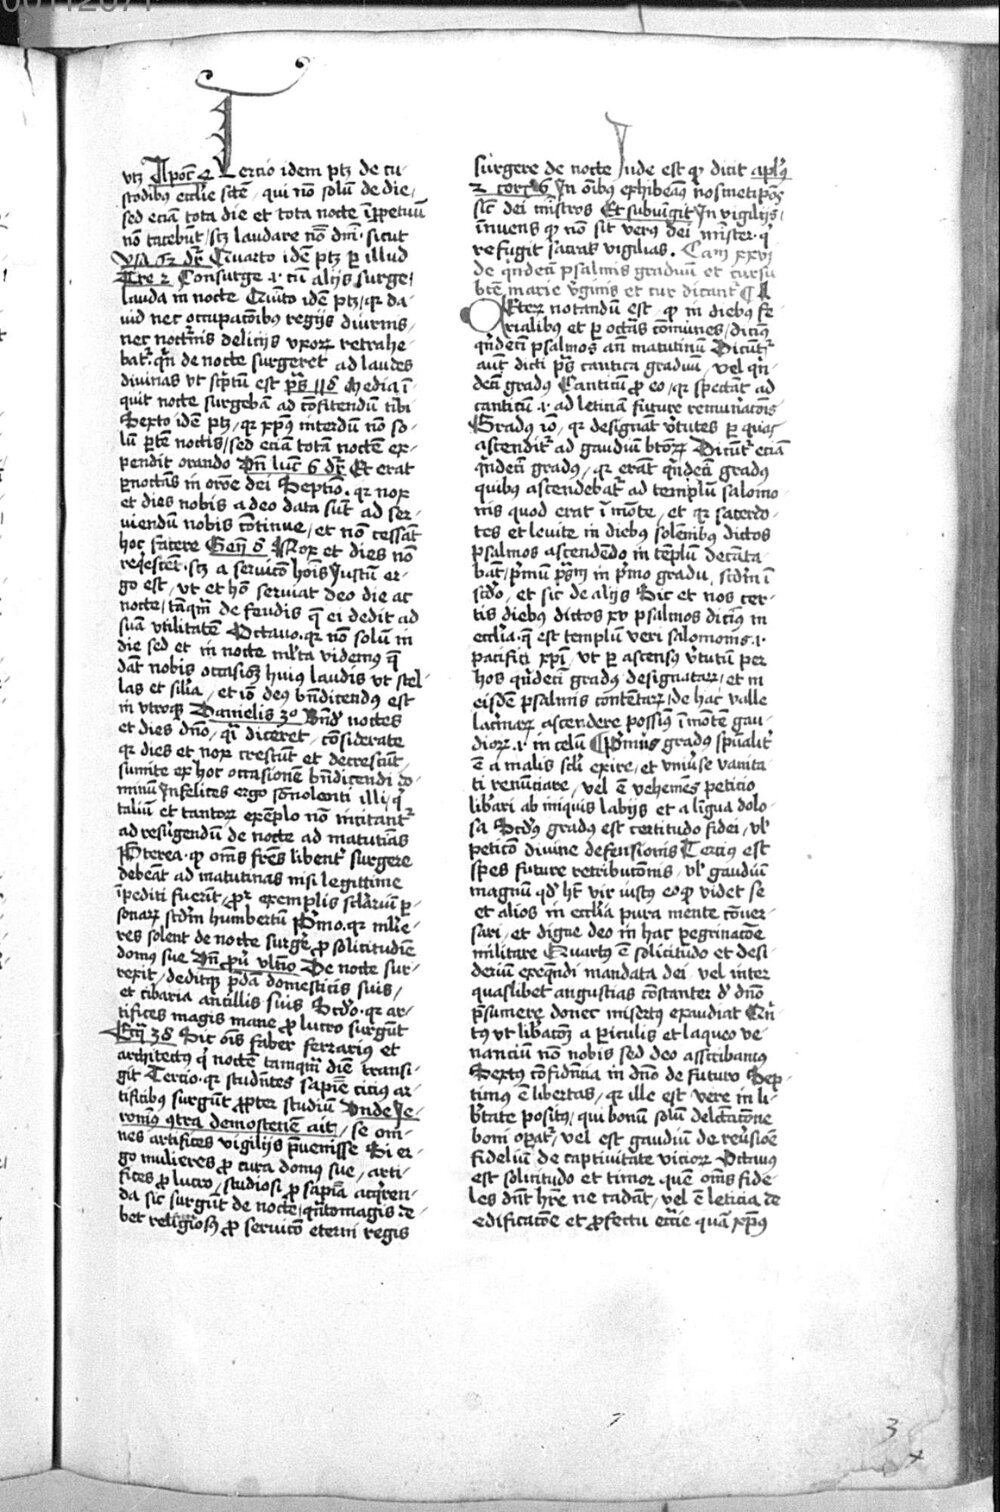 vtʒ Apoc̄ 4 Tercio idem ptʒ de cu-
stodibus ecclīe sctē / qui nō solū de die /
sed eciā tota die et tota nocte ī ꝑpetuū
nō tacebūt / scʒ laudare nōē dn̄i · sicut
ysa 62 dr̄ Quarto idem ptʒ ꝑ illud
Tre 2 Consurge · i · cū alijs surge /
lauda in nocte Quīto idē ptʒ / qꝛ da-
uid nec occupacōibus regijs diurnis /
nec noctr̄nis delicijs vxoꝝ retrahe-
bat̉ · qn̄ de nocte surgeret ad laudes
diuinas vt scptū est p̄s 118 Media ī-
quit nocte surgebā ad cōfitendū tibi
Sexto idē ptʒ / qꝛ xp̄us interdū nō so-
lū ꝑtē noctis / sed eciā totā noctē ex-
pendit orando Vn̄ luc̄ 6 dr̄ Et erat
ꝑnoctās in orōe dei Septīo · qꝛ nox
et dies nobis a deo data sūt ad ser-
uiendū nobis cōtinue / et nō cessāt
hoc facere Gen̄ 8 Nox et dies nō
reqescēt · scʒ a seruicō hoīs Iustū er-
go est / vt et hō seruiat deo die ac
nocte / tāq̄m de feudis q̄ ei dedit ad
suā vtilitatē Octauo · qꝛ nō solū in
die sed et in nocte ml̄ta videmus q̄
dāt nobis occasiōʒ huius laudis vt stel-
las et silīa / et iō deus bn̄dicendus est
in vtroqꝫ Danielis 3o Bn̄d̄ noctes
et dies dn̄o / qī diceret / cōsiderate
qꝛ dies et nox crescūt et decrescūt /
sumite ex hoc occasionē bn̄dicendi do-
minū Infelices ergo sōnolenti illi / q̄
taliū et tantoꝝ exēplo nō incitant̉
ad resurgendū de nocte ad matutinas
Pterea · qꝫ om̄s fr̄es libent̉ surgere
debeāt ad matutinas nisi legittime
īpediti fuerīt / pꝛ exemplis sclariū ꝑ-
sonaꝝ scd̄m humbertū P̄mo · qꝛ mlīe-
res solent de nocte surgē ꝓ solicitudīe
domus sue Vn̄ ꝓu vltīo De nocte sur-
rexit / deditqꝫ p̄dā domesticis suis /
et cibaria ancillis suis Scd̄o · qꝛ ar-
tifices magis mane ꝓ lucro surgūt
Eccī 38 Sic oīs faber ferrarius et
architectus q̉ noctē tamqm̄ diē transi-
git Tercio · qꝛ studn̄tes sapīe cicius ar-
tificibus surgūt ꝓpter studiū Vnde Ie-
ronimus 9tra demostenē ait / se om-
nes artifices vigilijs p̄uenisse Si er-
go mulieres ꝓ cura domus sue / arti-
fices ꝓ lucro / studiosi ꝓ sapīa acqren-
da sic surgūt de nocte / qn̄tomagis de-
bet religiosus ꝓ seruicō eterni regis
surgere de nocte Inde est qꝫ dicit aplus
2 cor 6 In oībus exhibeam9 nosmetip̄os
sic̄ dei mīstros Et subiungit In vigilijs /
innuens qꝫ nō sit verus dei mīster · q̉
refugit sacras vigilias . Cam xxvi
de qn̄decī psalmis graduū et cursu
btē marie v̉ginis et cur dicant̉
Ceteꝝ notandū est · qꝫ in diebus fe-
rialibus et ꝑ octaūs cōmunes / dicim9
qn̄decī psalmos an̄ matutinū Dicūt̉
aūt dicti p̄s cantica graduū / vel qn̄-
decī gradus Canticū ꝓ eo / qꝛ spectāt ad
canticū · i · ad leticiā future remun̉acōis
Gradus iō / qꝛ designāt v̉tutes ꝑ quas
ascendit̉ ad gaudiū btōꝝ Dicūt̉ eciā
qn̄decī gradus / qꝛ erāt qn̄decī gradus
quibus ascendebat̉ ad templū salomo-
nis quod erat ī mōte / et qꝛ sacerdo-
tes et leuite in diebus solēnibus dictos
psalmos ascendēdo in tēplū decāta-
bāt / p̄mū p̄sm in p̄mo gradu / scd̄m ī
scd̄o / et sic de alijs Sic et nos cer-
tis diebus dictos xv psalmos dicim9 in
ecclīa · q̄ est templū veri salomonis · i ·
pacifici xp̄i / vt ꝑ ascensus v̉tutū per
hos qn̄decī gradus designataꝝ / et in
eisdē psalmis contētaꝝ / de hac valle
lacrīaꝝ ascendere possim9 ī mōtē gau-
dioꝝ · i · in celū P̄mus gradus spūalit̉
ē a malis scl̄i exire / et vniūse vanita-
ti renūciare / vel ē vehemēs peticio
librari ab iniquis labijs et a ligua dolo-
sa Scd̄us gradus est certitudo fidei / vl̉
peticō diuine defensionis Tercius est
spes future retribucōnis / vl̉ gaudiū
magnū qd̄ ht̄ vir iustus eo qꝫ videt se
et alios in ecclīa pura mente cōuer-
sari / et digne deo in hac pegrinacōe
militare Quartus ē solicitudo et desi-
deriū exeqn̄di mandata dei / vel inter
quaslibet angustias cōstanter d̄ dn̄o
p̄sumere donec misertus exaudiat Qn̄-
tus vt libacōʒ a ꝑiculis et laqueo ve-
nanciū nō nobis sed deo asscribamus
Sextus cōfidn̄cia in dn̄o de futuro Sep-
timus ē libertas / qꝛ ille est vere in li-
b̉tate positus / qui bonū solū delectacōne
boni opat̉ / vel est gaudiū de reủsione
fideliū de captiuitate vicioꝝ Octauus
est solicitudo et timor quē om̄s fide-
les dn̄t hr̄e ne cadāt / vel ē leticia de
edificacōe et ꝓfectu ecc̄ie quā xp̄us
3
x